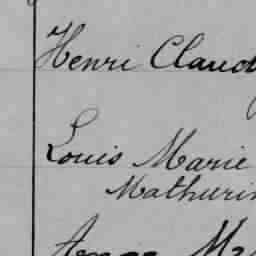 Henri Claud
Louis Marie
Mathurin